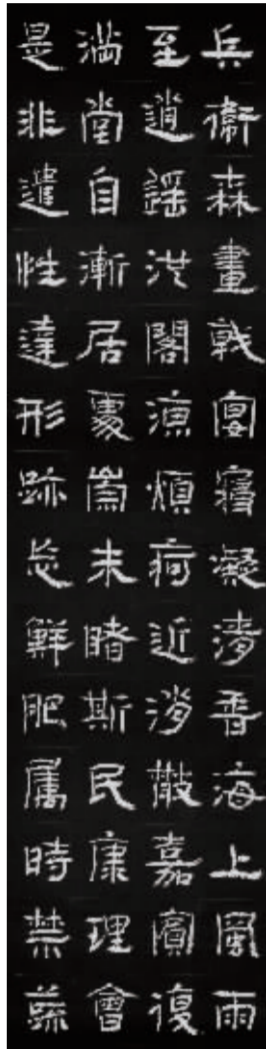 兵衛森畫戟宴寢凝清香海上風雨
至逍遙池閣涼煩疴近消散嘉賓復
滿堂自漸居處崇未睹斯民康理會
是非遣性達形跡忘鮮肥属時禁蔬